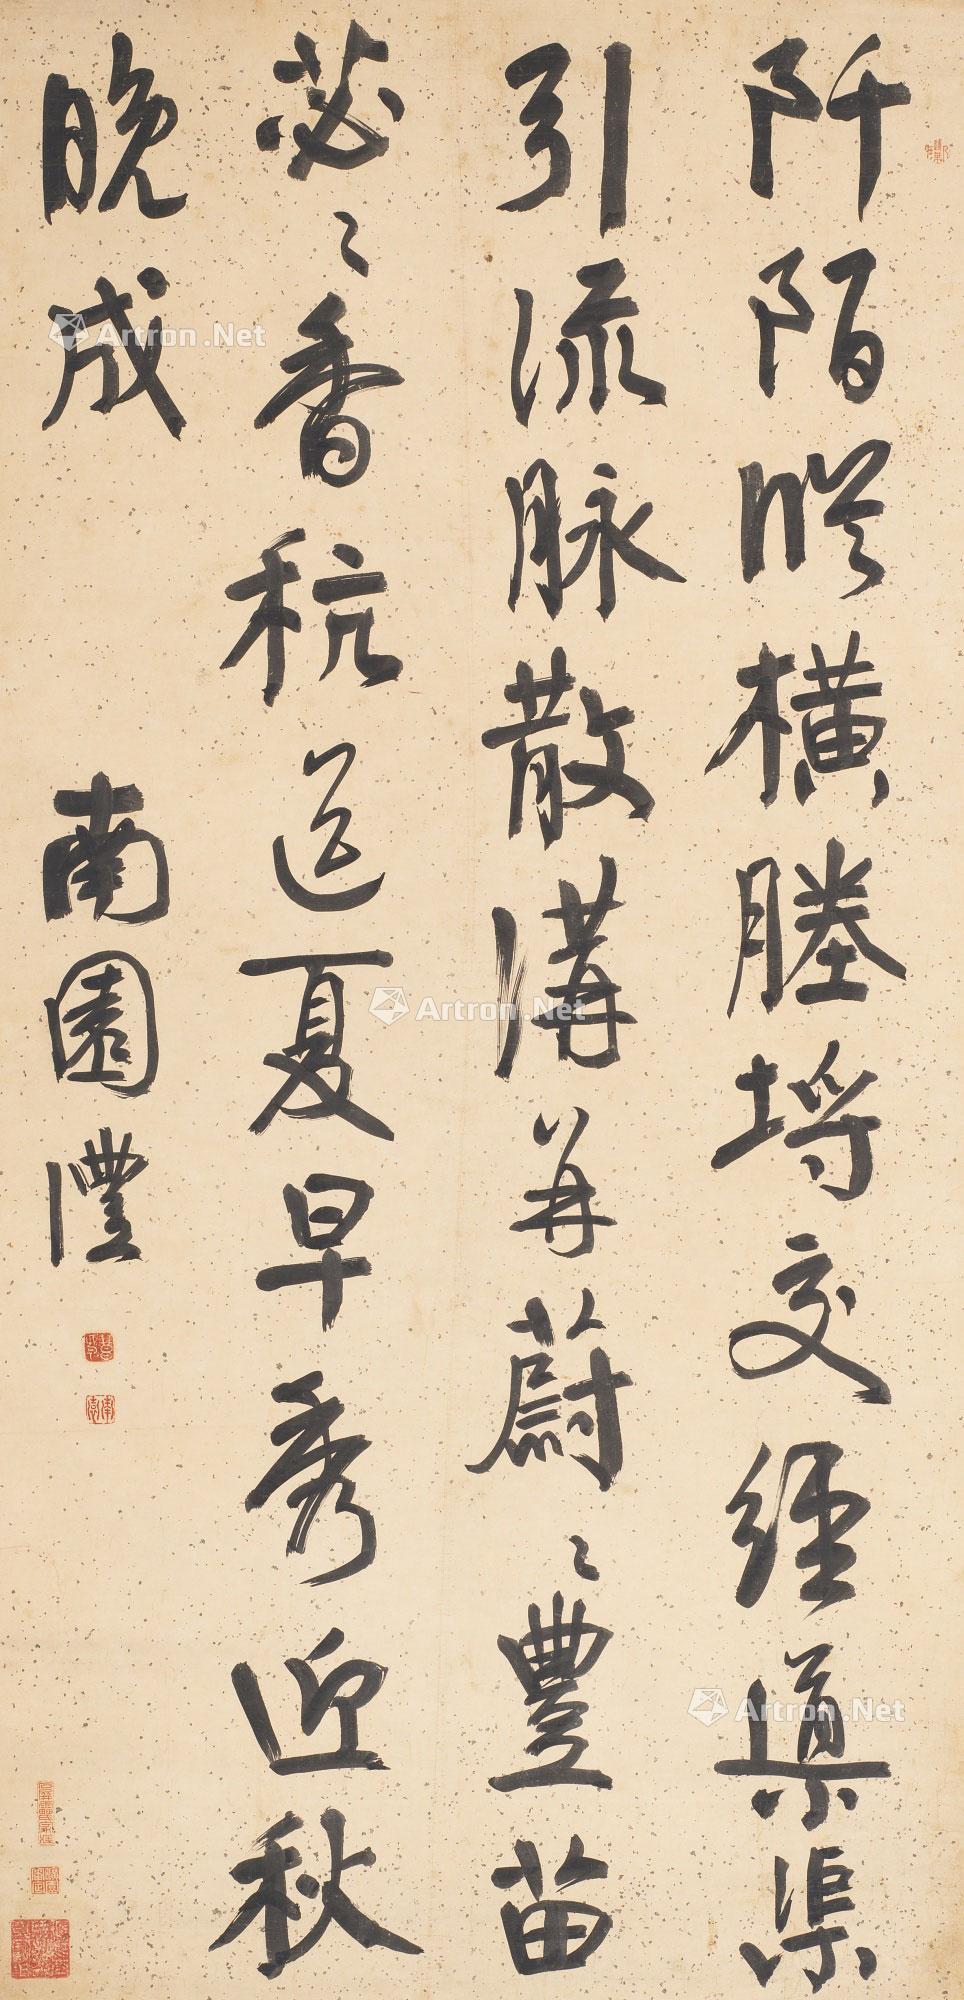 阡陌縱橫塍埒交經導渠
引流脉散溝并蔚〻豐苗
苾〻香秔送夏早秀迎秋
晚成
南園灃
Artron.Net
Artron.Net
Artron.Net